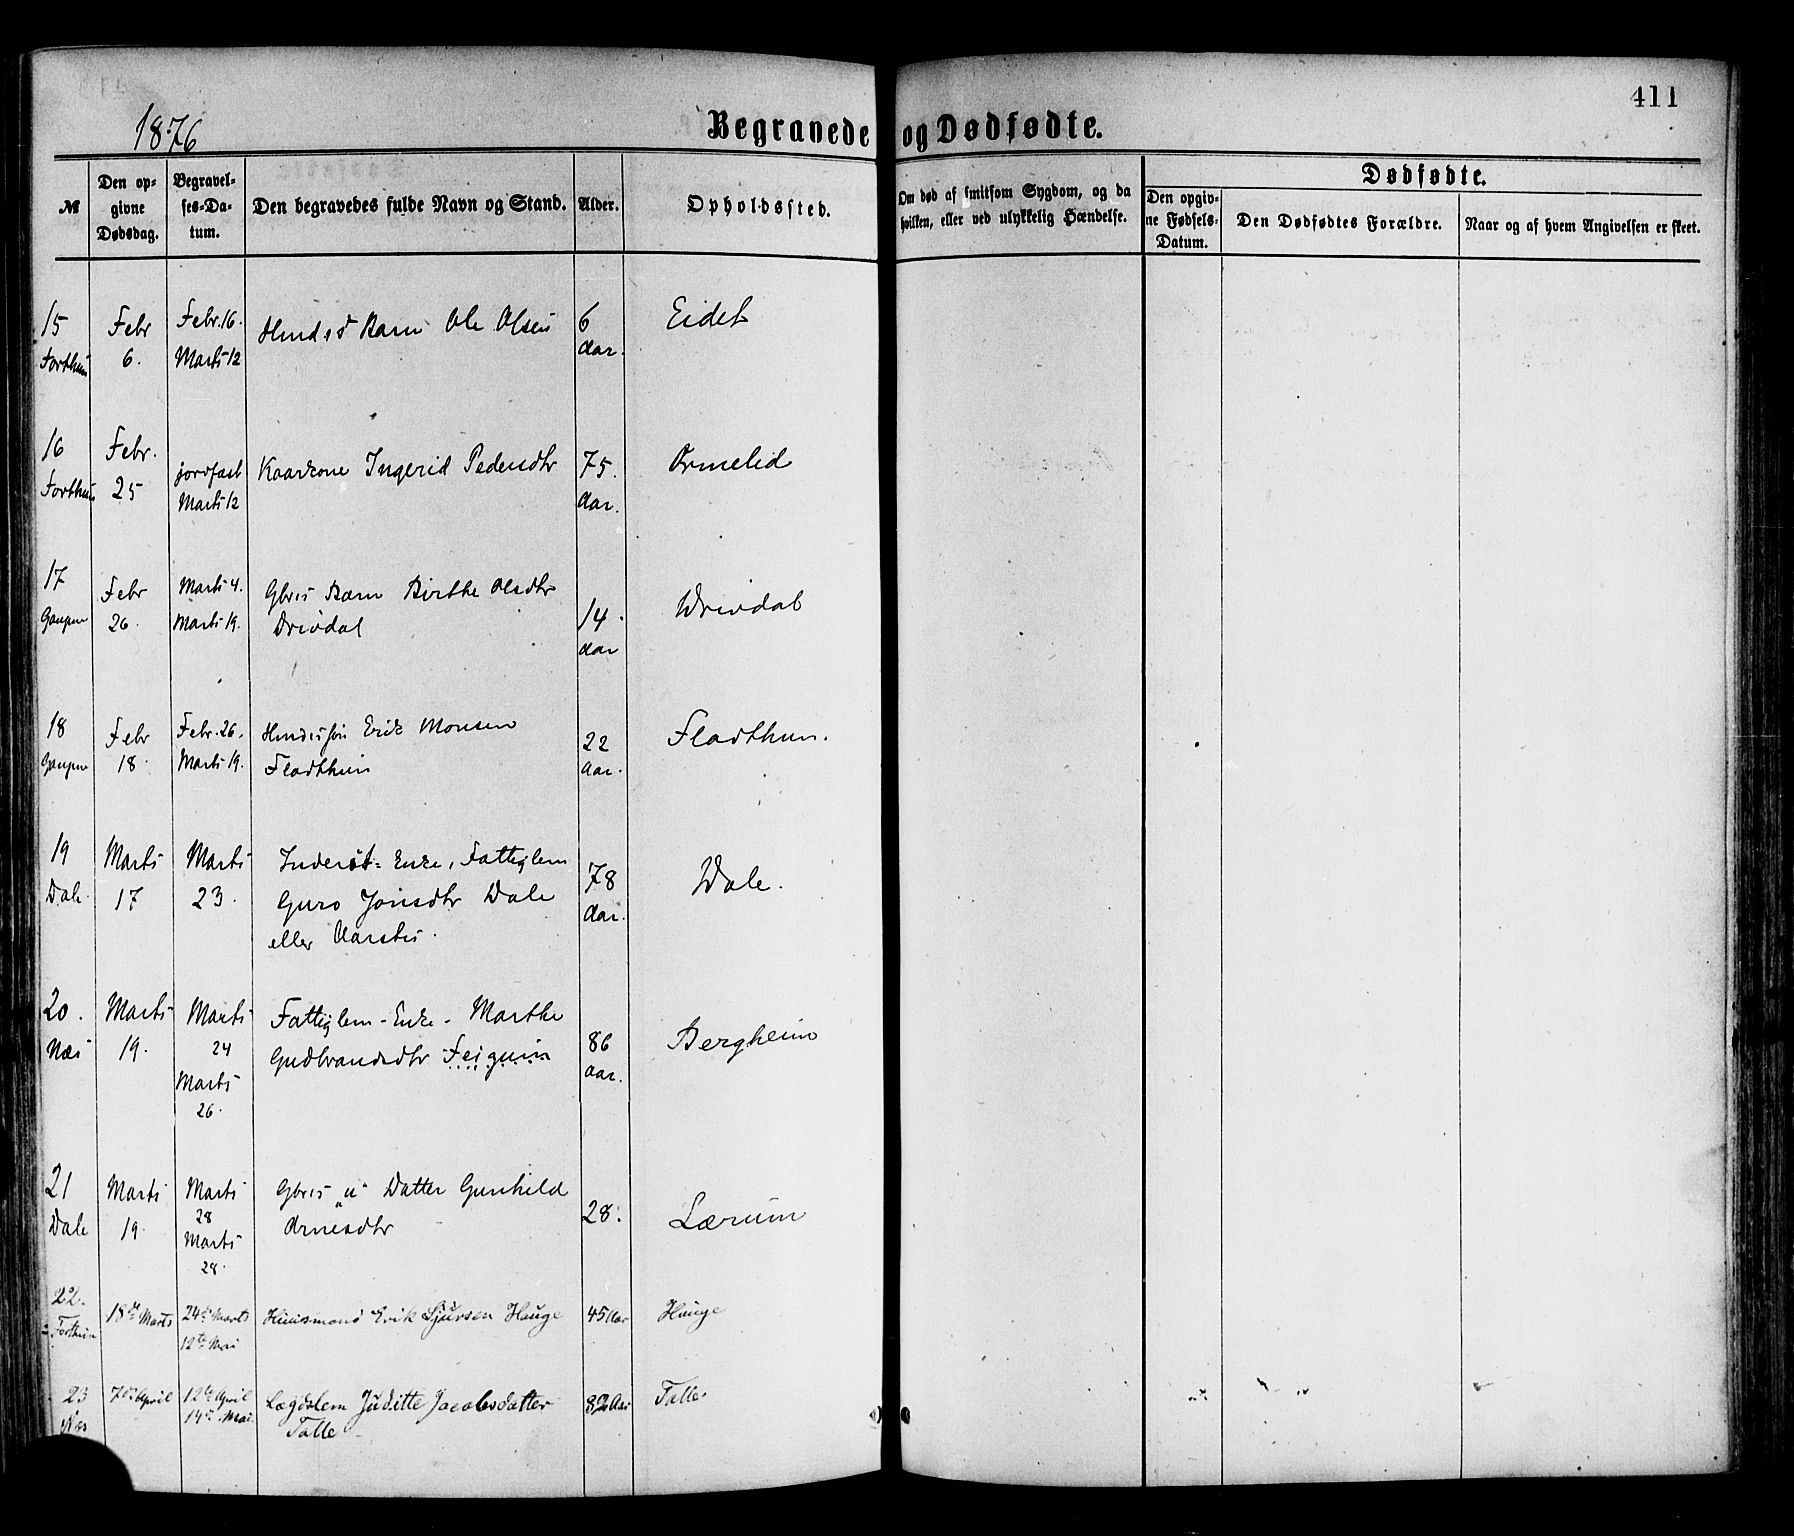 411
1876
Begravede og Dødfødte.
№
Den op-
givne
Dødsdag.
Begravel-
ses-Da-
tum.
Den begravedes fulde Navn og Stand.
Alder.
Opholdssted.
Om død af smitsom Sygdom, og da
hvilken, eller ved ulykkelig Hændelse.
Dødfødte.
Den opgiv-
ne Fødsels-
Datum.
Den Dødfødtes Forældre.
Naar og af hvem Angivelsen er skeet.
15
Forthun
Febr
6.
Febr. 16.
Marts 12
Barn Ole Olsen
6
Aar.
Eidet
16
Forthun
Febr.
25
jordfæst
Marts 12
Kaarkone Ingerid Pedersdtr
75.
Aar.
Ormelid
17
Gaupne
Febr
26.
Marts 4.
Marts 19.
Gbrs Barn Birthe Olsdtr
Drivdal
14.
Aar
Drivdal
18
Gaupne
Febr
18.
Febr. 26.
Marts 19.
Erik Monsen
Fladthun
22
Aar.
Fladthun.
19
Dale.
Marts
17
Marts
23.
Inderst-Enke, Fattiglem
Guro Jonsdtr Dale
eller
78
Aar.
Dale.
20.
Næs
Marts
19.
Marts
24
Marts
26.
Fattiglem-Enke- Marthe
Gudbrandsdtr Feigum
86
Aar.
Bergheim
21
Dale
Marts
19.
Marts
28
Marts
28.
Gbrs "u" Datter Gunhild
Arnesdtr
28.
Lærum
22.
Forthun
18de Marts
24de Marts
12te Mai
Huusmand Erik Sjursen Hauge
45 Aar
Hauge
23
Næs
7de April
12te April
14de Mai.
Lægdslem Juditte Jacobsdatter
Talle
82 Aar
Talle.